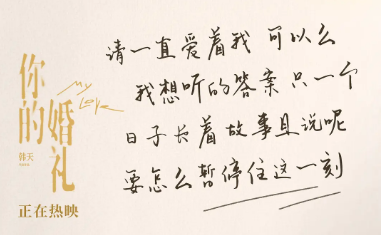 你的婚礼
My Love
韩天
正在热映
请一直爱着我 可以么
我想听的答案只一个
日子长着故事且说呢
要怎么暂停住这一刻